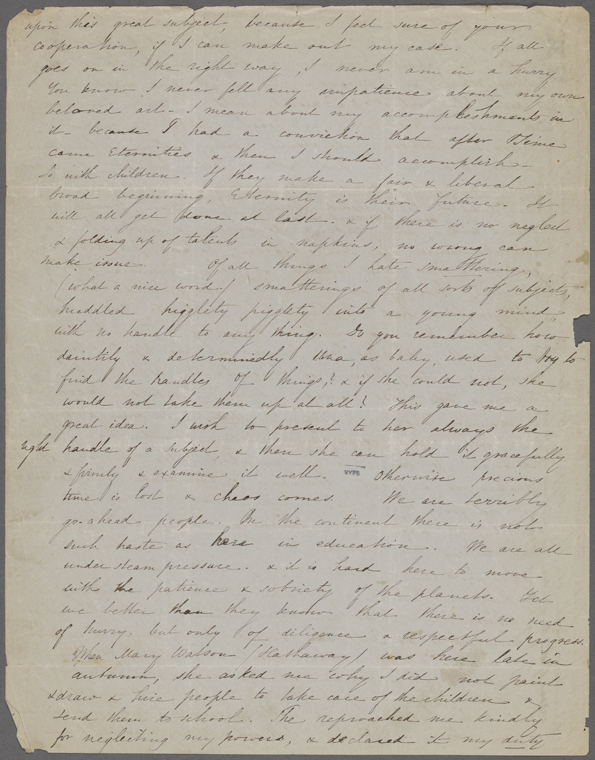 upon this great subject, because I feel sure of your
cooperation, if I can make out my case. If all
goes on in the right way, I never am in a hurry
You know I never felt any impatience about my own
beloved art - I mean about my accomplishments in
it - because I had a conviction that after Time
came Eternities & then I should accomplish -
So with children. If they make a fair & liberal
broad beginning, Eternity is their future. It
will all get done at last - & if there is no neglect
& folding up of talents in napkins, no wrong can
make issue. Of all things I hate smattering,
(what a nice word!) smatterings of all sorts of subjects,
huddled higglety pigglety into a young mind,
with no handle to any thing. Do you remember how
daintily & determinedly Una, as baby, used to try to
find the handles of things,? & if she could not, she
would not take them up at all? This gave me a
great idea. I wish to present to her always the
right handle of a subject, & then she can hold it gracefully
& firmly & examine it well. Otherwise precious
NYPB
time is lost & chaos comes. We are terribly
go-ahead people. On the continent there is not
such haste as here in education. We are all
under steam pressure - & it is hard here to move
with the patience & sobriety of the planets. Yet
we better than they know that there is no need
of hurry, but only of diligence & respectful progress.
When Mary Watson (Hathaway) was here late in
autumn, she asked me why I did not paint
& draw & hire people to take care of the children &
send them to school. She reproached me kindly
for neglecting my powers, & declared it my duty